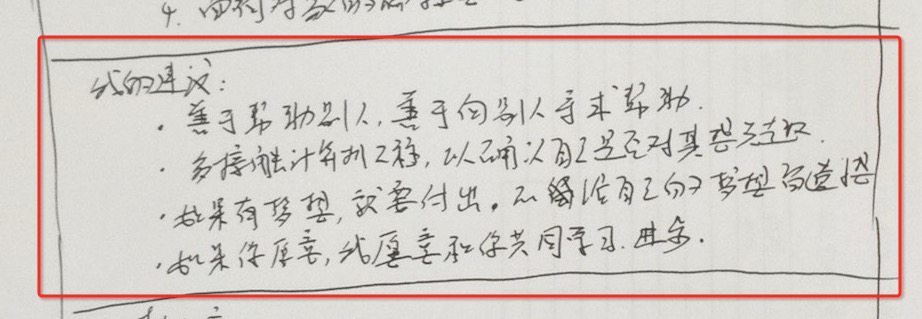 我的建议:
· 善于帮助别人,善于向别人寻求帮助.
· 多接触计算机工程,以确认自己是否对其感兴趣.
· 如果有梦想,就要付出。不给自己的梦想留遗憾
· 如果你愿意,我愿意和你共同学习.进步.